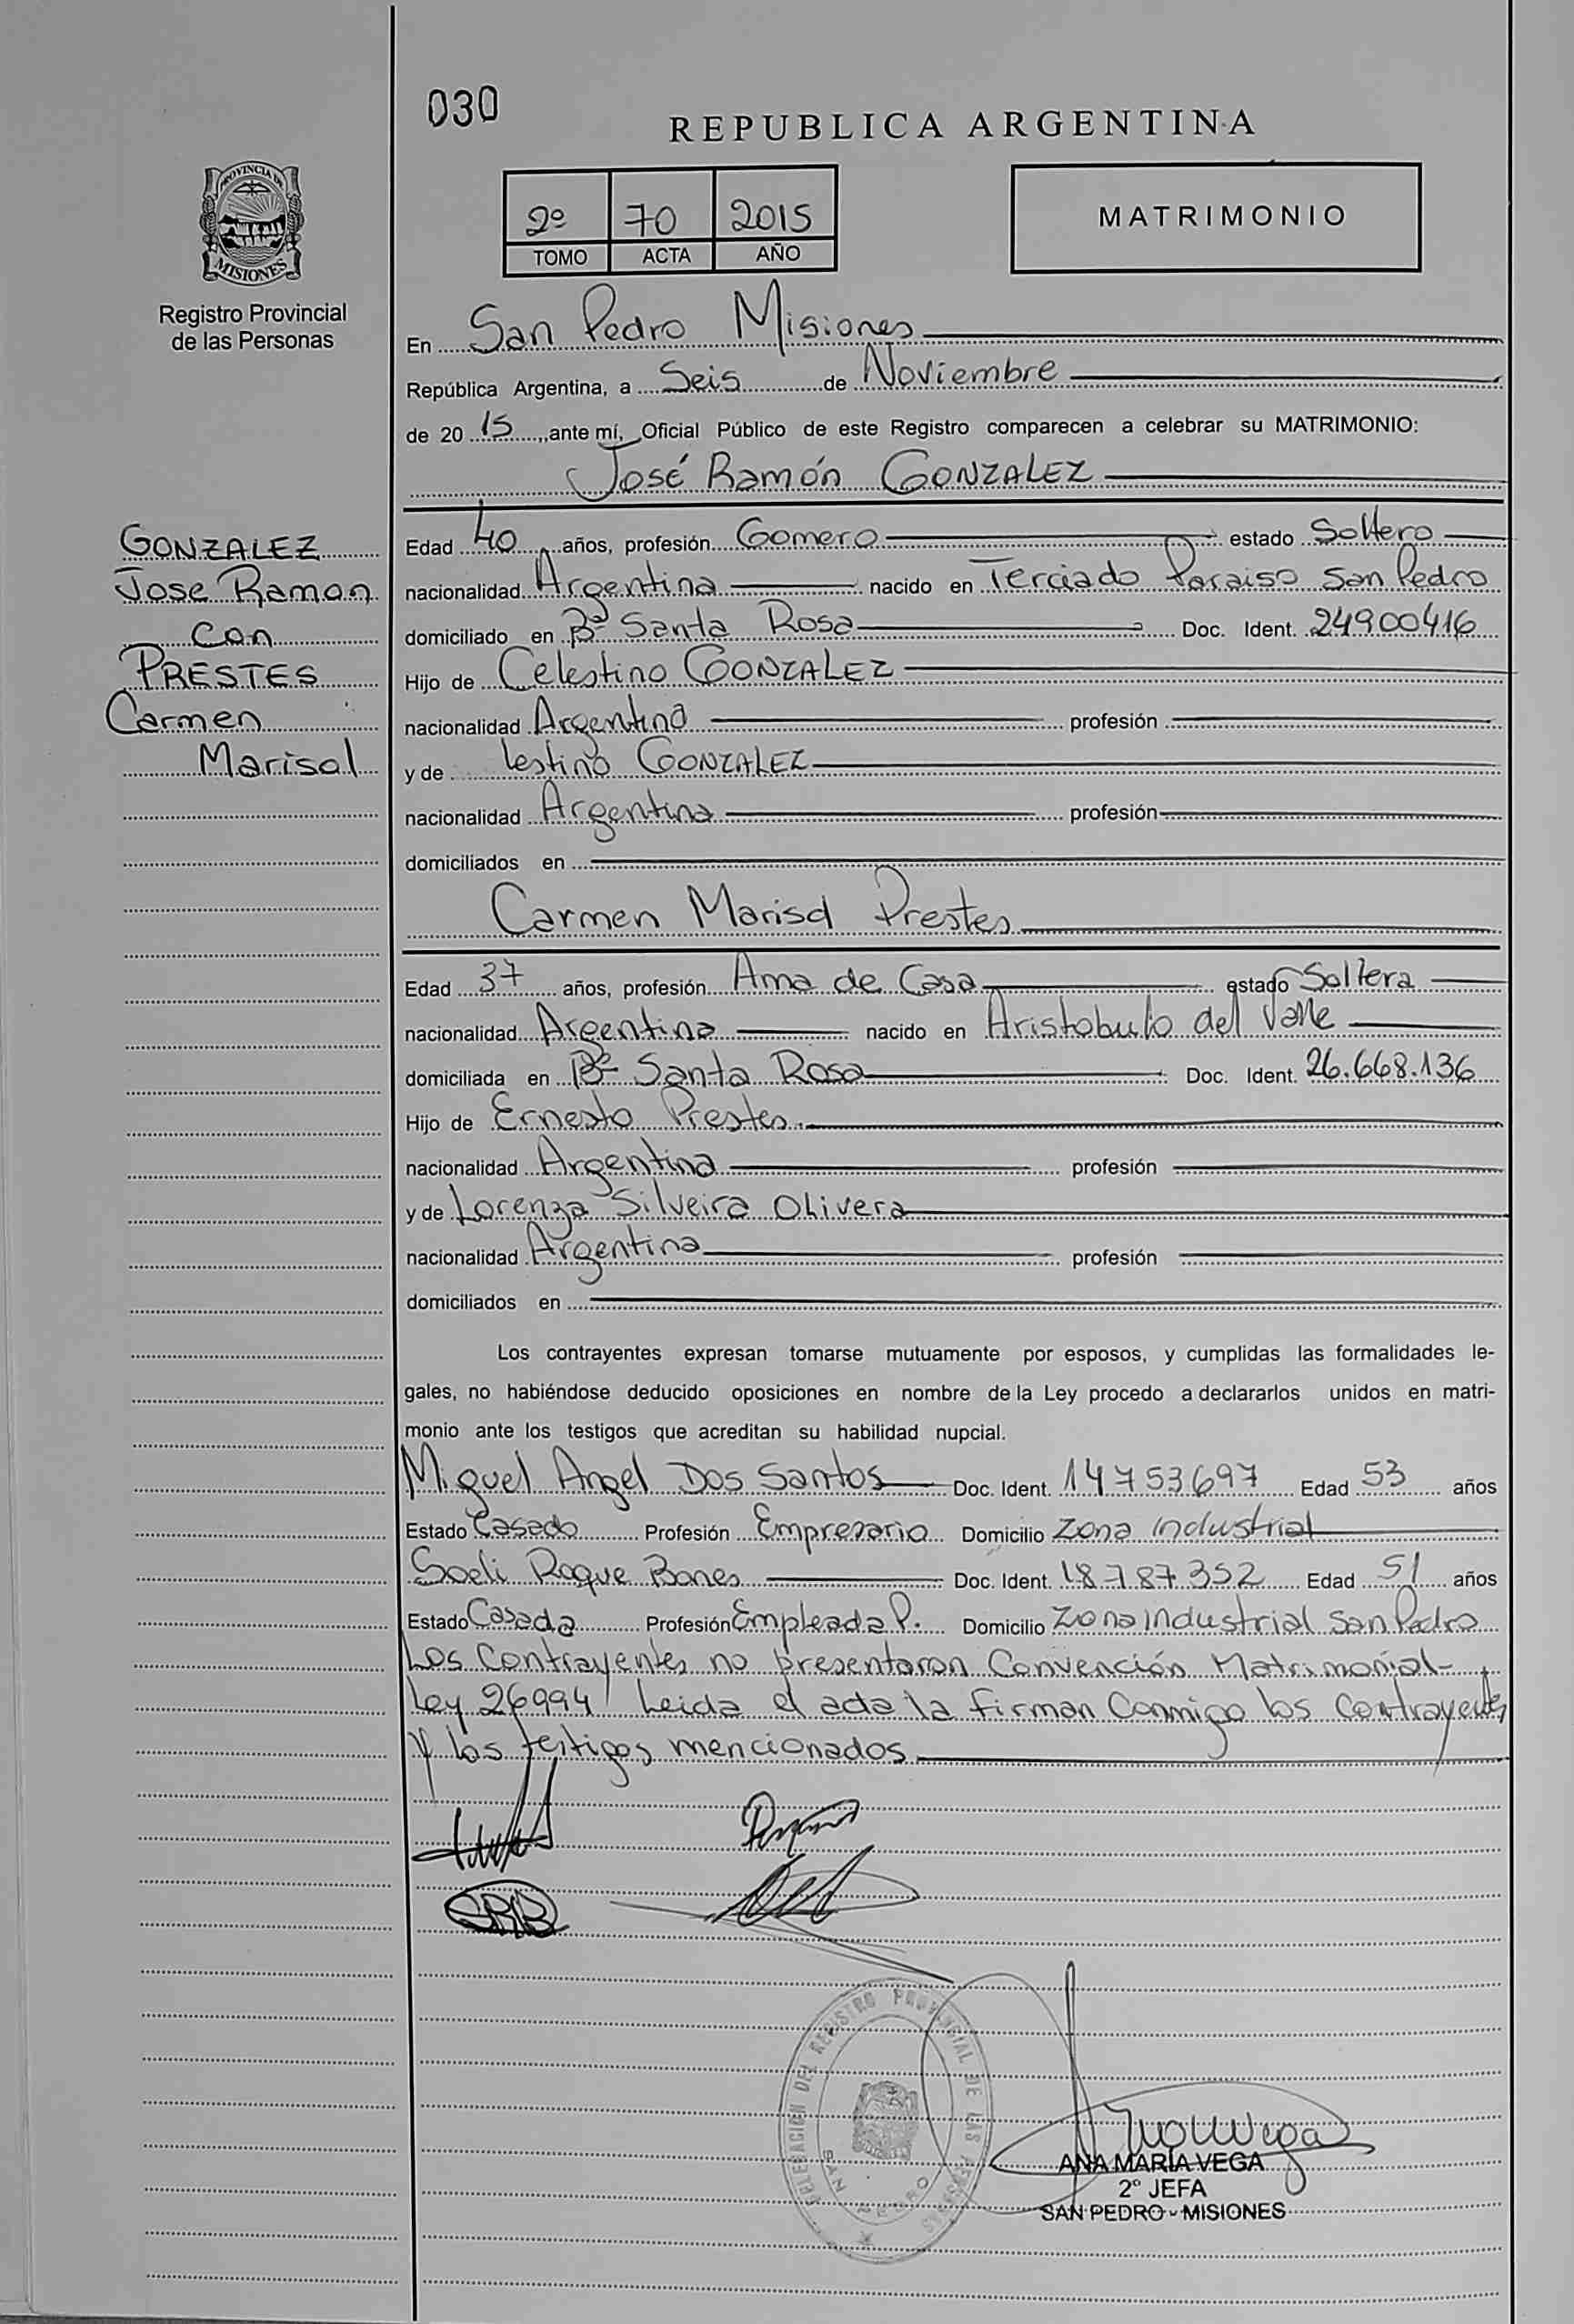 030
REPUBLICA ARGENTINA
2º 70 2015
TOMO ACTA AÑO
MATRIMONIO
PROVINCIA DE
MISIONES
Registro Provincial
de las Personas
En San Pedro Misiones
República Argentina, a Seis de Noviembre
de 2015, ante mí, Oficial Público de este Registro comparecen a celebrar su MATRIMONIO:
José Ramón GONZALEZ
GONZALEZ
Jose Ramon
con
PRESTES
Carmen
Marisol
Edad 40 años, profesión Gomero estado Soltero
nacionalidad Argentina nacido en Terciado Paraiso San Pedro
domiciliado en Bº Santa Rosa Doc. Ident. 24900416
Hijo de Celestino GONZALEZ
nacionalidad Argentina profesión
y de lestino GONZALEZ
nacionalidad Argentina profesión
domiciliados en
Carmen Marisol Prestes
Edad 37 años, profesión Ama de Casa estado Soltera
nacionalidad Argentina nacido en Aristobulo del Valle
domiciliada en Bº Santa Rosa Doc. Ident. 26.668.136
Hijo de Ernesto Prestes
nacionalidad Argentina profesión
y de Lorenza Silveira Olivera
nacionalidad Argentina profesión
domiciliados en
Los contrayentes expresan tomarse mutuamente por esposos, y cumplidas las formalidades le-
gales, no habiéndose deducido oposiciones en nombre de la Ley procedo a declararlos unidos en matri-
monio ante los testigos que acreditan su habilidad nupcial.
Miguel Angel Dos Santos Doc. Ident. 14753697 Edad 53 años
Estado Casado Profesión Empresario Domicilio Zona Industrial
Soeli Roque Bones Doc. Ident. 18787352 Edad 51 años
Estado Casada Profesión Empleada P. Domicilio Zona Industrial San Pedro
Los Contrayentes no presentaron Convención Matrimonial-
Ley 26994/ Leida el acta la firman Conmigo los Contrayentes
Y los testigos mencionados
DELEGACION DEL REGISTRO PROVINCIAL DE LAS PERSONAS
SAN PEDRO
ANA MARÍA VEGA
2º JEFA
SAN PEDRO - MISIONES